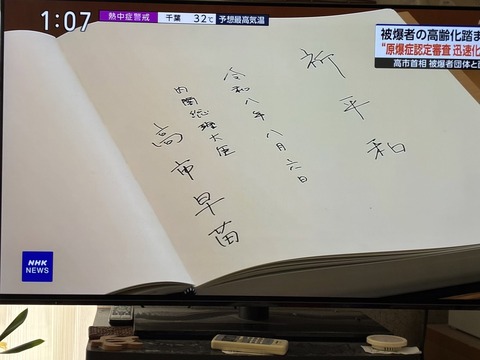 1:07
熱中症警戒 千葉 32℃ 予想最高気温
被爆者の高齢化踏ま
“原爆症認定審査 迅速化
高市首相 被爆者団体と
祈平和
令和八年八月六日
内閣総理大臣
高市早苗
NHK
NEWS